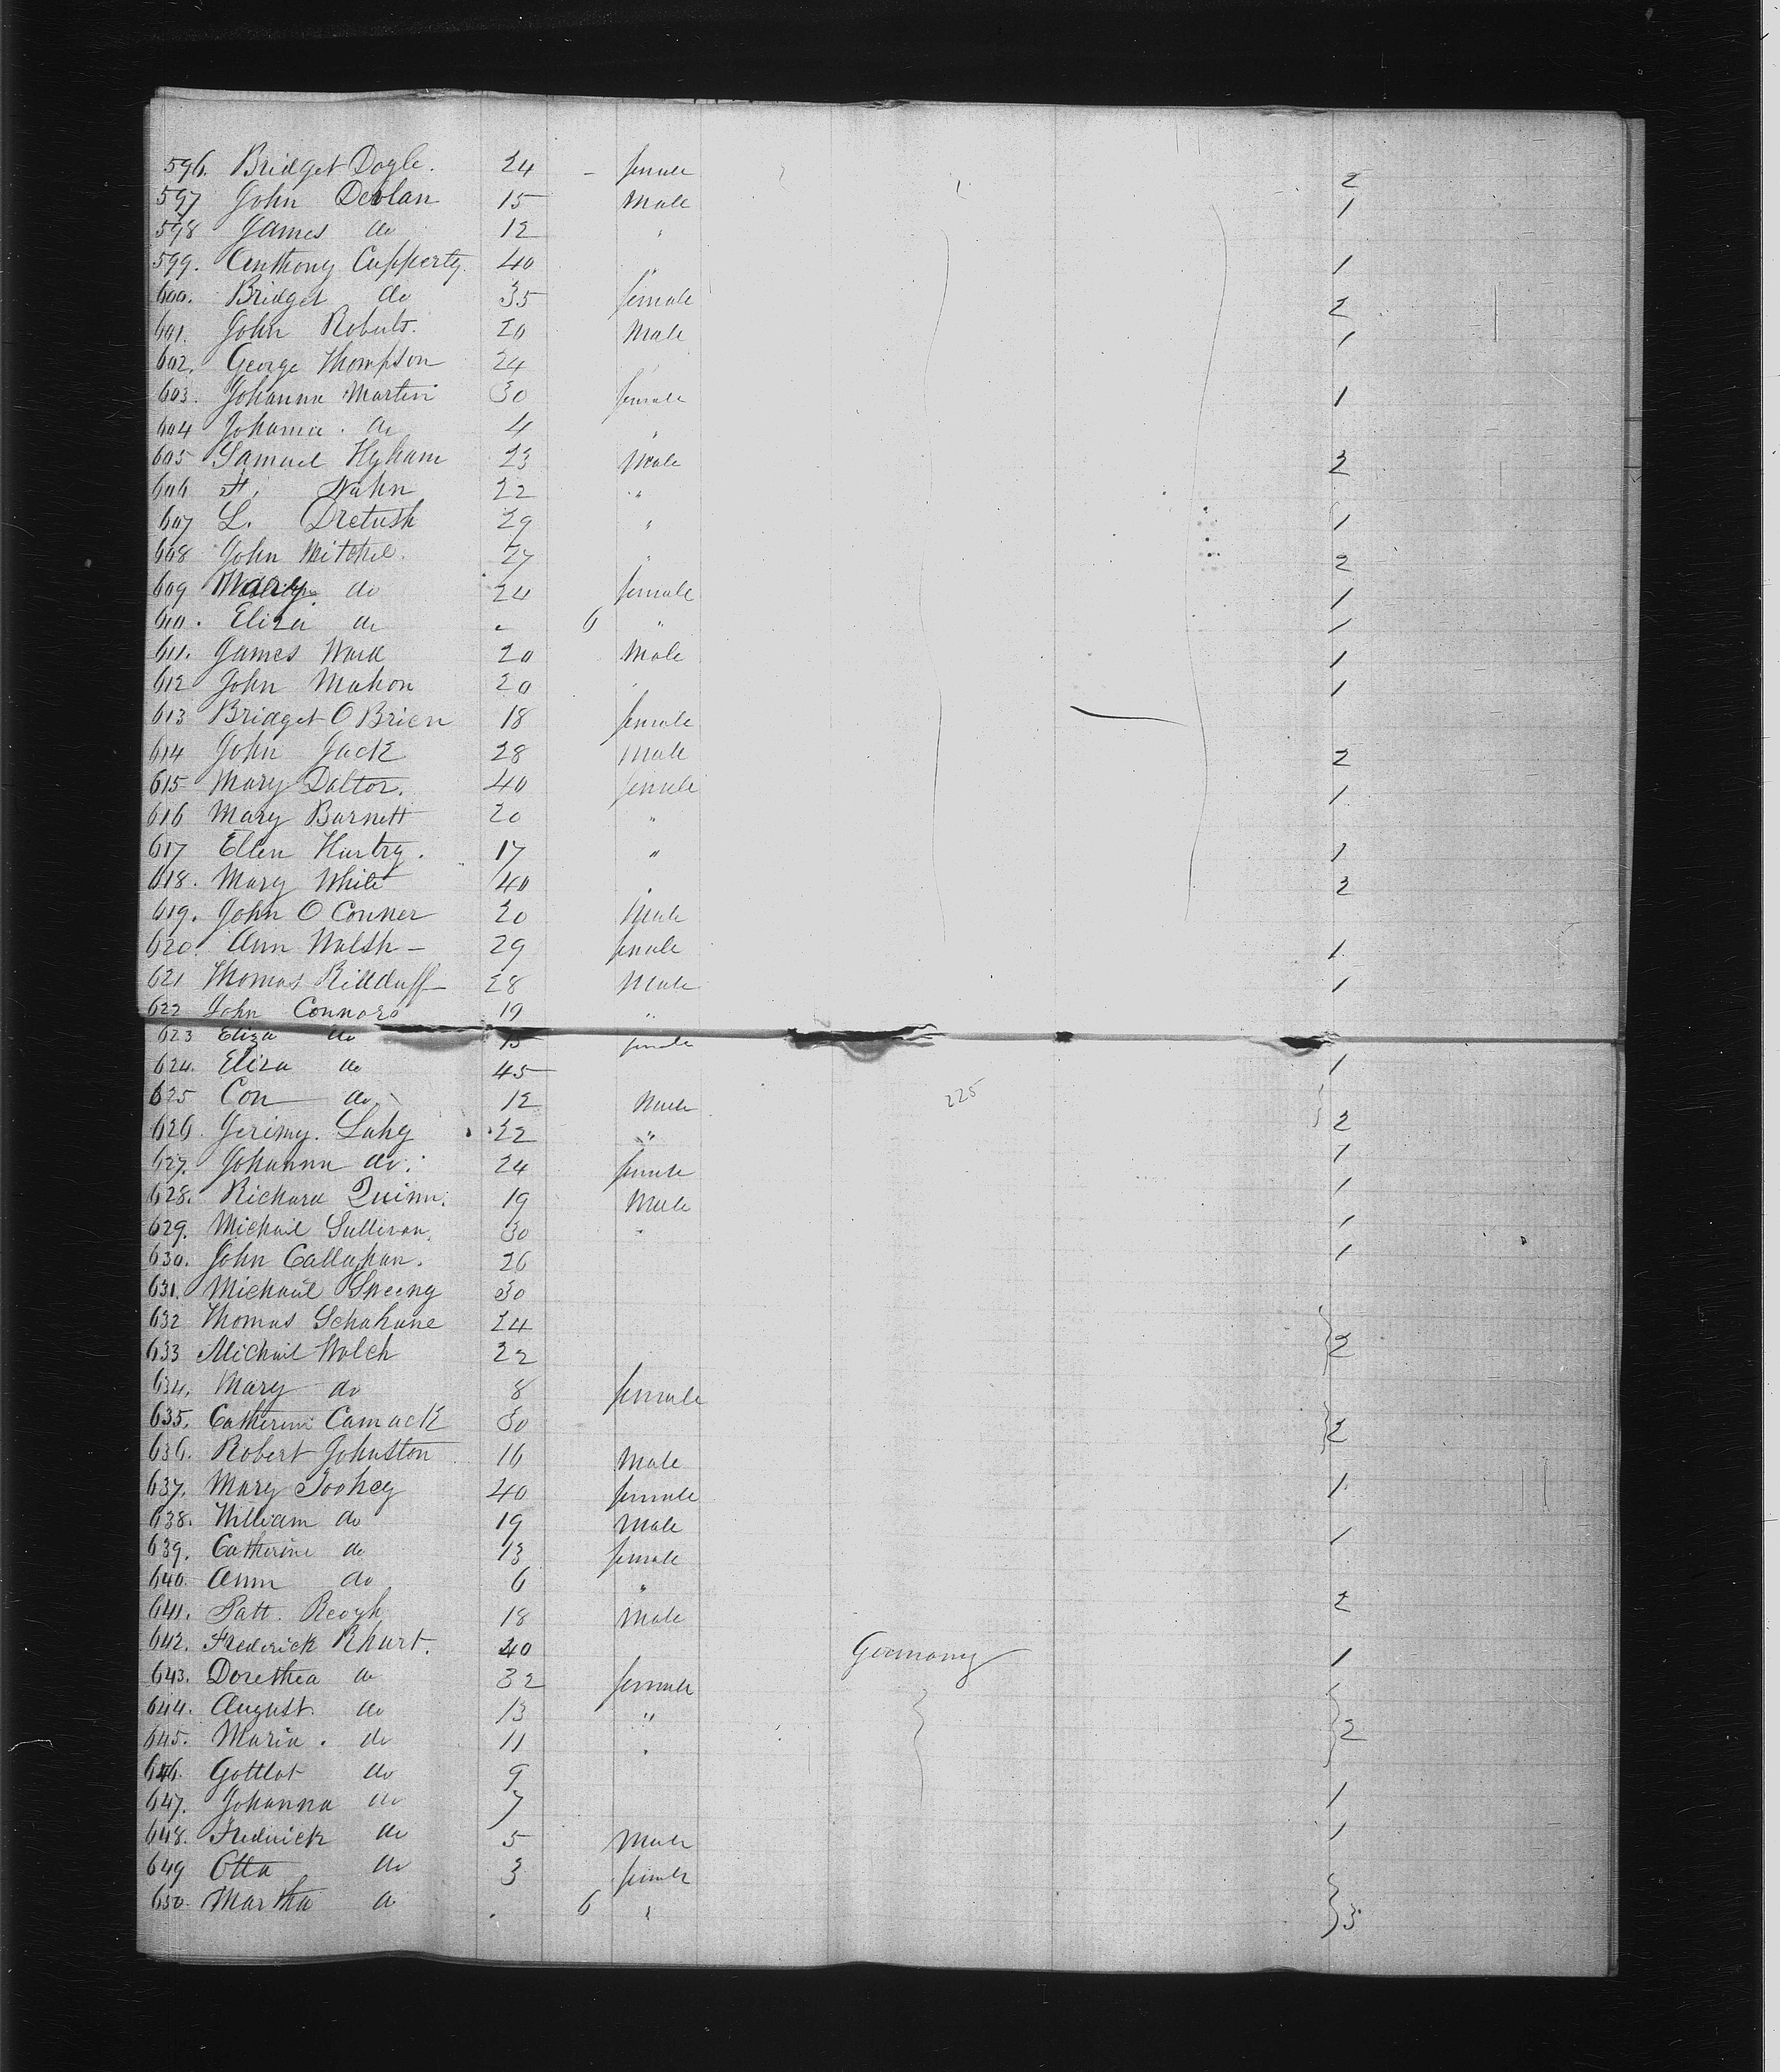 596. Bridget Dogle. 24 - female 2
597 John Devlan 15 Male 1
598 James do 12 "
599. Anthony Cupperty. 40 " 1
600. Bridget do 35 female 2
601. John Roberts. 20 Male 1
602. George Thompson 24 "
603. Johanna Martin 30 female 1
604 Johanna. do 4 "
605 Samuel Hyham 23 Male 2
606 Nahn 22 "
607 L. Dretush 29 " 1
608 John Mitchel. 27 " 2
609 Mary do 24 female 1
610. Eliza do - 6 " 1
611. James Ward 20 Male 1
612 John Mahon 20 " 1
613 Bridget O Brien 18 female
614 John Jack 28 Male 2
615 Mary Dalton. 40 female 1
616 Mary Barnett 20 "
617 Ellen Hurtry. 17 " 1
618. Mary White 40 " 2
619. John O Conner 20 Male
620. Ann Walsh - 29 female 1
621 Thomas Killduff 28 Male 1
622 John Connors 19 "
623 Eliza do 15 female
624. Eliza do 45 1
625 Con do 12 Male 225
626. Jerimy. Lahy 22 " 2
627. Johanna do. 24 female 1
628. Richard Quinn. 19 Male 1
629. Michail Sullivan. 30 " 1
630. John Callaghan. 26 1
631. Michail Sheeny 30
632 Thomas Schahane 24
633 Michail Walch 22 2
634. Mary do 8 female
635. Catherine Camack 30 2
636. Robert Johnston 16 Male
637. Mary Toohey 40 female 1
638. William do 19 Male
639. Catherine do 13 female 1
640. Ann do 6 "
641. Patt. Reogh 18 Male 2
642. Frederick Rhart. 40 Germany 1
643. Dorethea do 32 female
644. August. do 13 "
645. Maria. do 11 " 2
646. Gottlot do 9
647. Johanna do 7 1
648. Frederick do 5 Male 1
649 Otta do 3 female
650. Martha do . 6 " 3